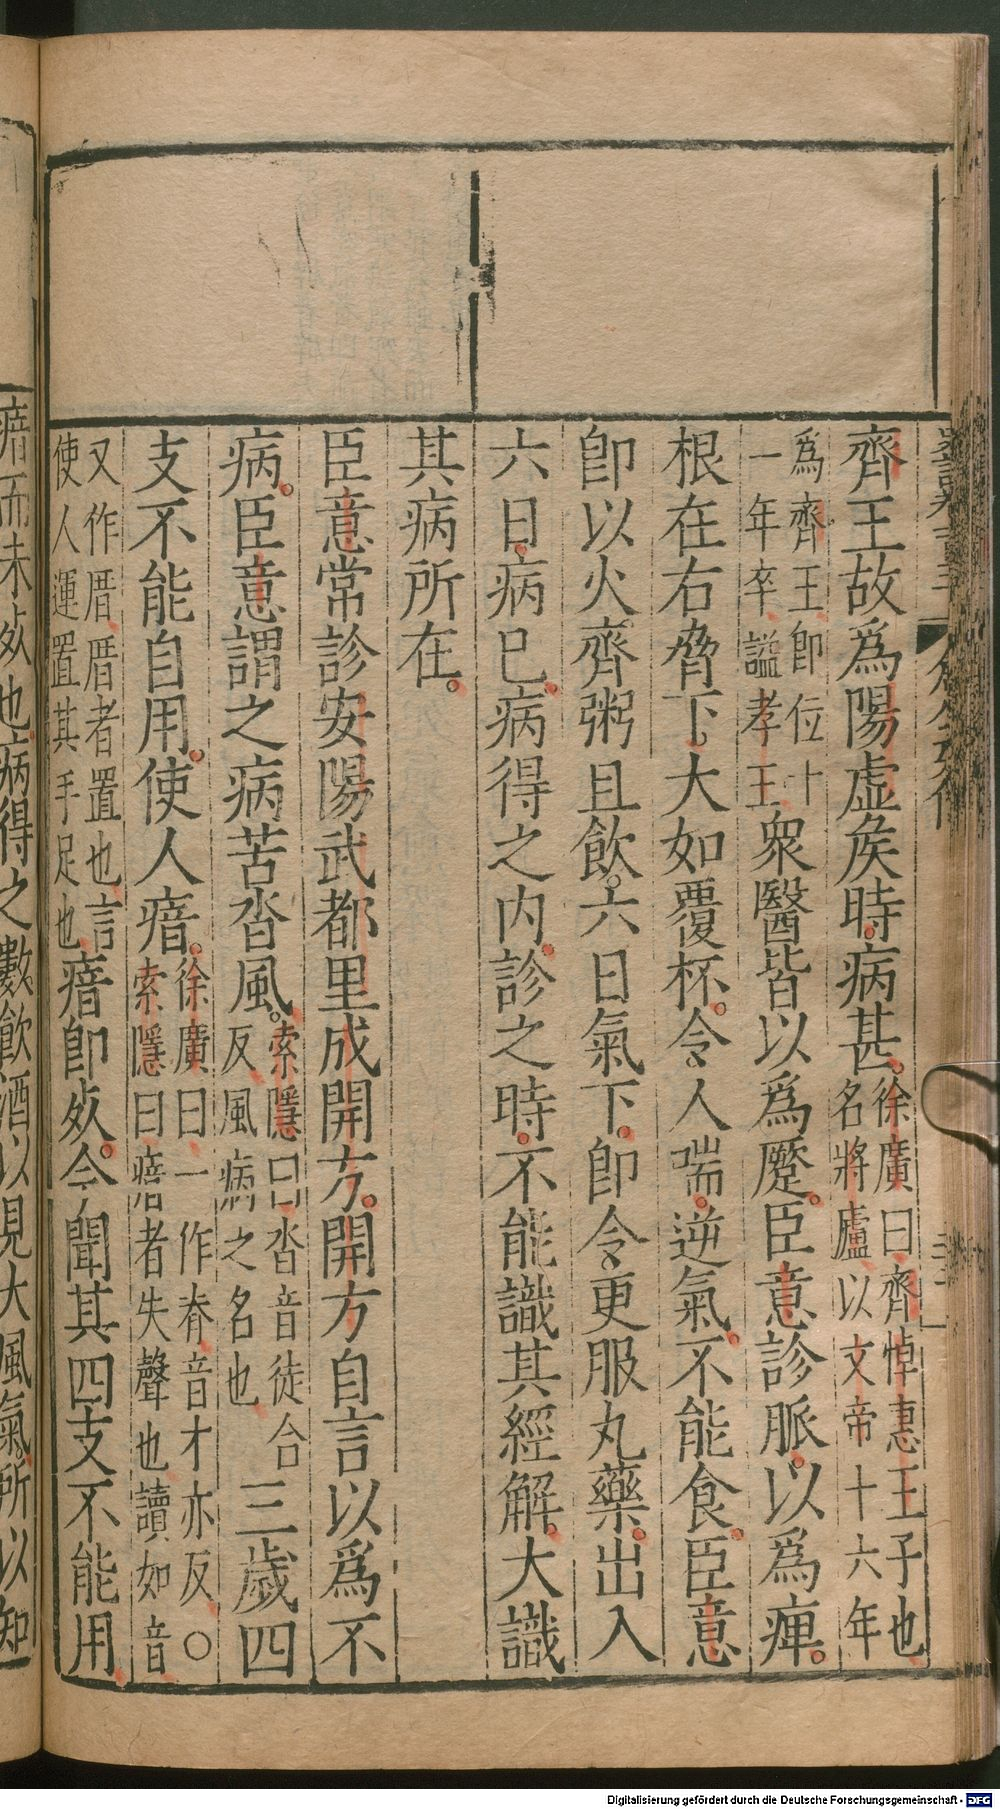 齊王故爲陽虛矦時病甚徐廣曰齊悼惠王子也名將廬以文帝十六年
爲齊王卽位十一年卒謚孝王衆醫皆以爲蹷臣意診脈以爲痺
根在右脅下大如覆杯令人喘逆氣不能食臣意
卽以火齊粥且飲六日氣下卽令更服丸藥出入
六日病已病得之內診之時不能識其經解大識
其病所在
臣意常診安陽武都里成開方開方自言以爲不
病臣意謂之病苦沓風索隱曰沓音徒合反風病之名也三歲四
支不能自用使人瘖徐廣曰一作脊音才亦反○索隱曰瘖者失聲也讀如音
又作厝厝者置也言使人運置其手足也瘖卽死今聞其四支不能用
瘖而未死也病得之數飲酒以見大風氣所以知
Digitalisierung gefördert durch die Deutsche Forschungsgemeinschaft - DFG